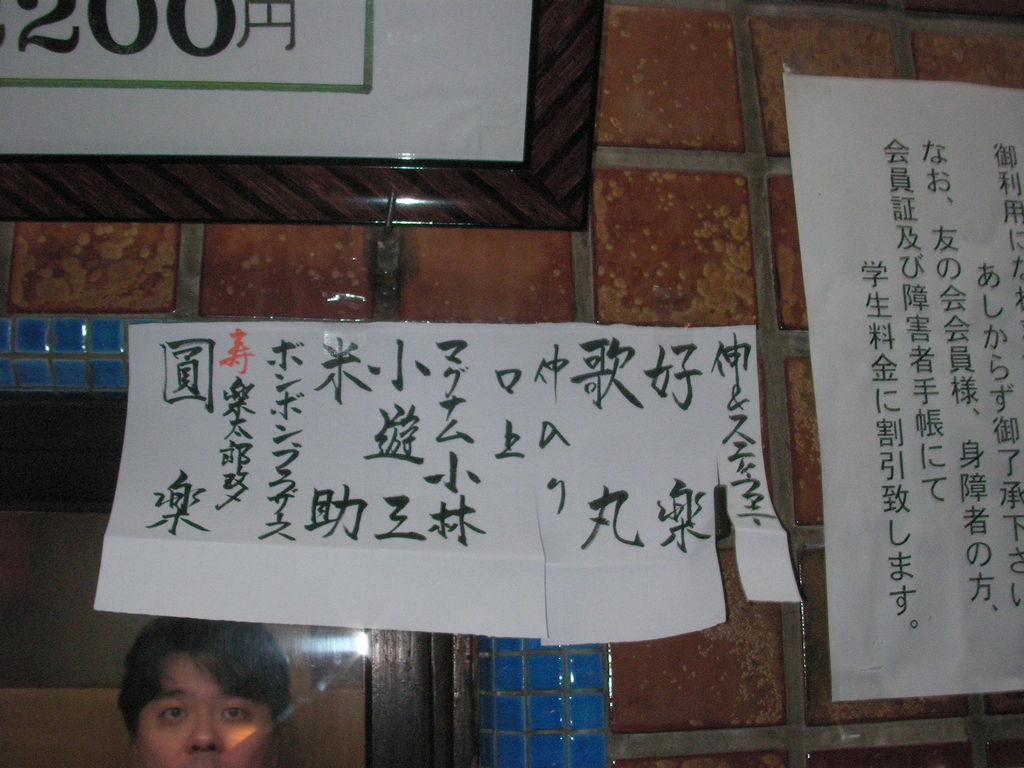 200円
御利用になれ
あしからず御了承下さい
なお、友の会会員様、身障者の方、
会員証及び障害者手帳にて
学生料金に割引致します。
伸&スティファニー
好楽
歌丸
仲入り
口上
マグナム小林
小遊三
米助
ボンボンブラザース
寿 楽太郎改メ
圓楽